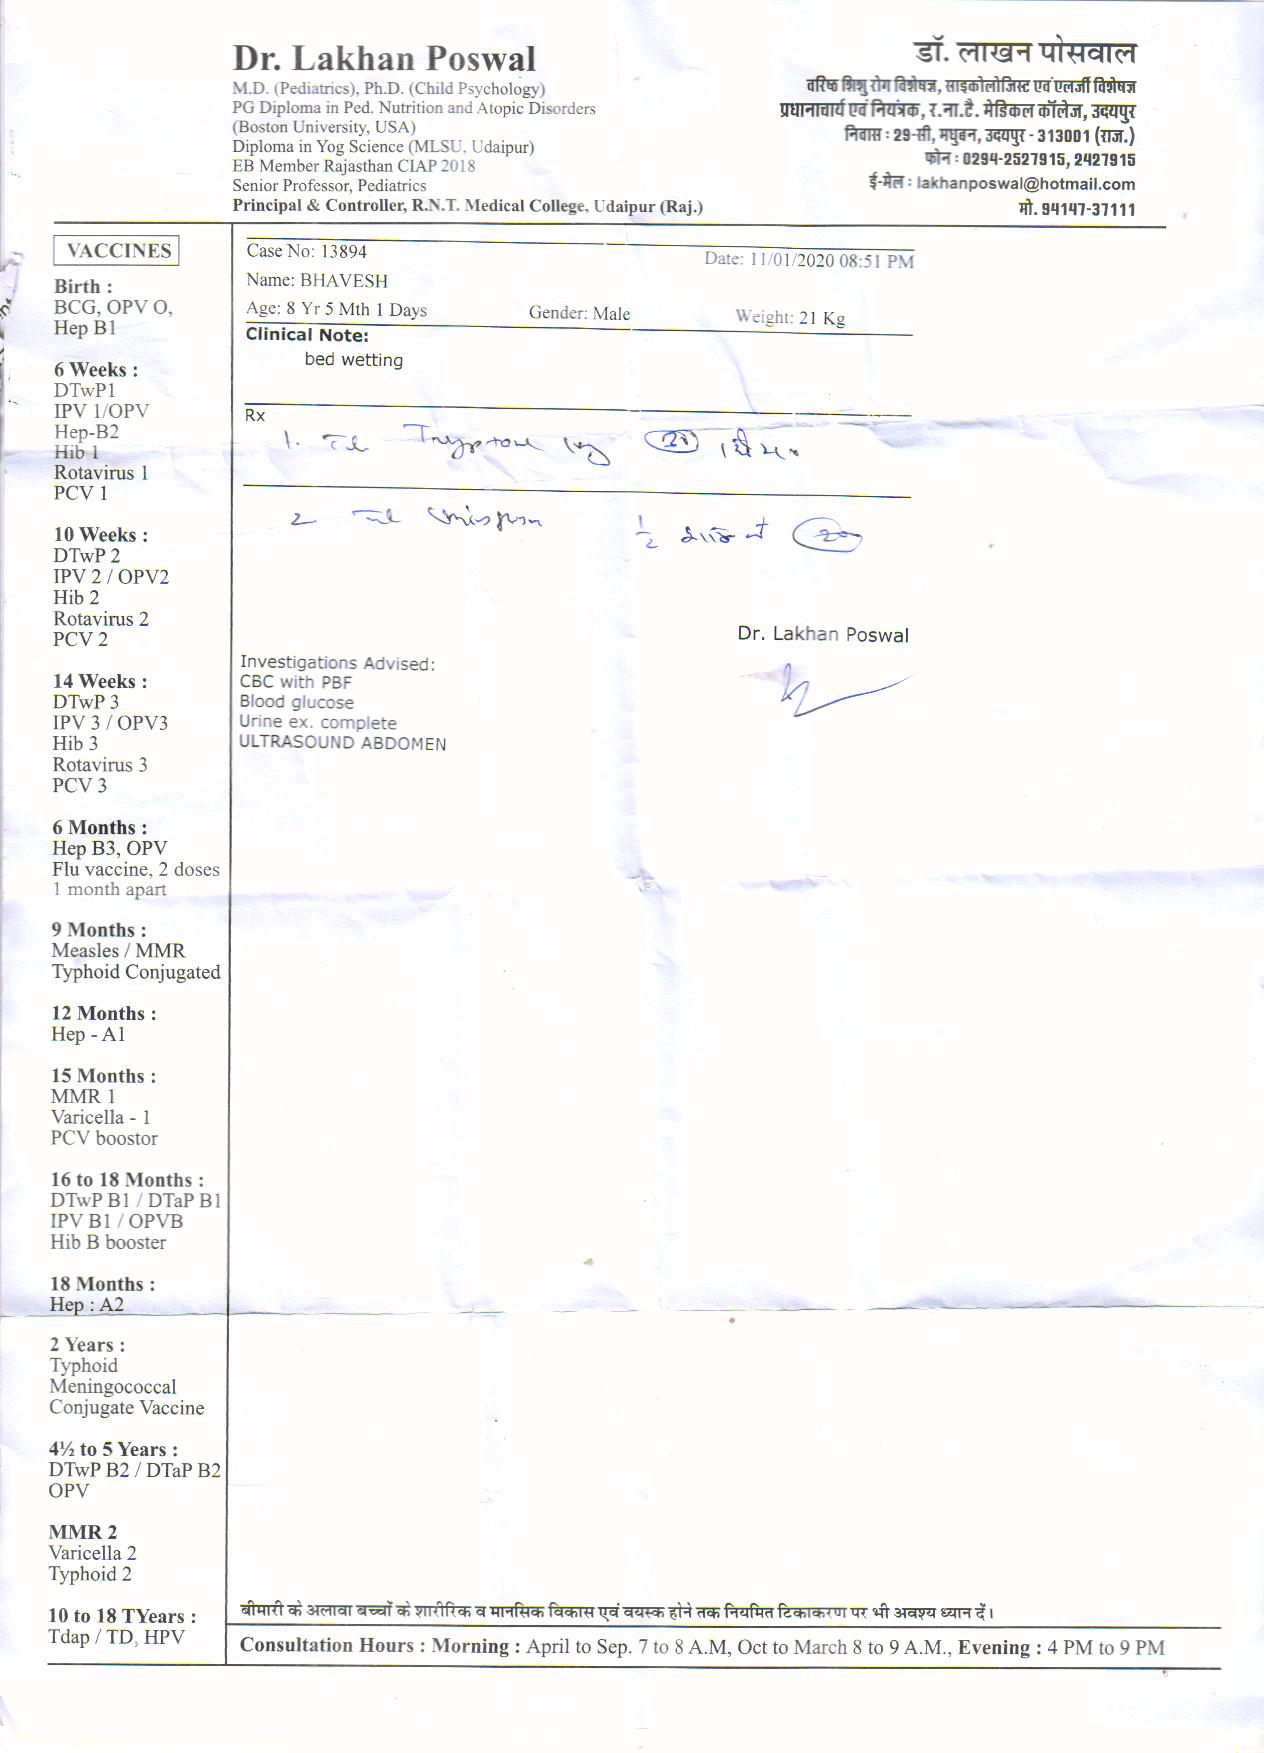 Dr. Lakhan Poswal
M.D. (Pediatrics), Ph.D. (Child Psychology)
PG Diploma in Ped. Nutrition and Atopic Disorders
(Boston University, USA)
Diploma in Yog Science (MLSU, Udaipur)
EB Member Rajasthan CIAP 2018
Senior Professor, Pediatrics
Principal & Controller, R.N.T. Medical College, Udaipur (Raj.)
डॉ. लाखन पोसवाल
वरिष्ठ शिशु रोग विशेषज्ञ, साइकोलोजिस्ट एवं एलर्जी विशेषज्ञ
प्रधानाचार्य एवं नियंत्रक, र.ना.टै. मेडिकल कॉलेज, उदयपुर
निवास : 29-सी, मधुबन, उदयपुर - 313001 (राज.)
फोन : 0294-2527915, 2427915
ई-मेल : lakhanposwal@hotmail.com
मो. 94147-37111
VACCINES
Birth :
BCG, OPV O,
Hep B1
6 Weeks :
DTwP1
IPV 1/OPV
Hep-B2
Hib 1
Rotavirus 1
PCV 1
10 Weeks :
DTwP 2
IPV 2 / OPV2
Hib 2
Rotavirus 2
PCV 2
14 Weeks :
DTwP 3
IPV 3 / OPV3
Hib 3
Rotavirus 3
PCV 3
6 Months :
Hep B3, OPV
Flu vaccine, 2 doses
1 month apart
9 Months :
Measles / MMR
Typhoid Conjugated
12 Months :
Hep - A1
15 Months :
MMR 1
Varicella - 1
PCV boostor
16 to 18 Months :
DTwP B1 / DTaP B1
IPV B1 / OPVB
Hib B booster
18 Months :
Hep : A2
2 Years :
Typhoid
Meningococcal
Conjugate Vaccine
4½ to 5 Years :
DTwP B2 / DTaP B2
OPV
MMR 2
Varicella 2
Typhoid 2
10 to 18 TYears :
Tdap / TD, HPV
Case No: 13894 Date: 11/01/2020 08:51 PM
Name: BHAVESH
Age: 8 Yr 5 Mth 1 Days Gender: Male Weight: 21 Kg
Clinical Note:
bed wetting
Rx
1.
2 ½
Dr. Lakhan Poswal
Investigations Advised:
CBC with PBF
Blood glucose
Urine ex. complete
ULTRASOUND ABDOMEN
बीमारी के अलावा बच्चों के शारीरिक व मानसिक विकास एवं वयस्क होने तक नियमित टिकाकरण पर भी अवश्य ध्यान दें।
Consultation Hours : Morning : April to Sep. 7 to 8 A.M, Oct to March 8 to 9 A.M., Evening : 4 PM to 9 PM